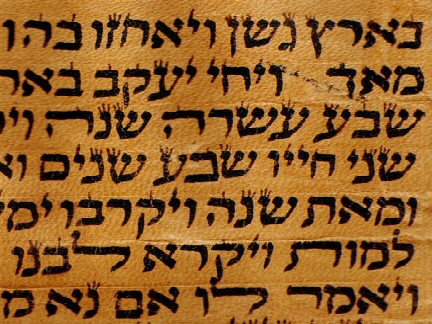 בארץ גשן ויאחזו בה ו
מאד ויחי יעקב באר
שבע עשרה שנה וי
שני חייו שבע שנים וא
ומאת שנה ויקרבו ימי
למות ויקרא לבנו
ויאמר לו אם נא מ